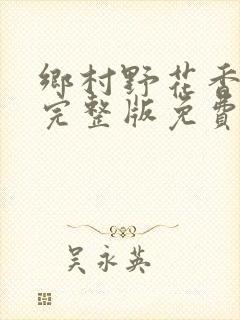 鄉村野花香
完整版免費
吳永英